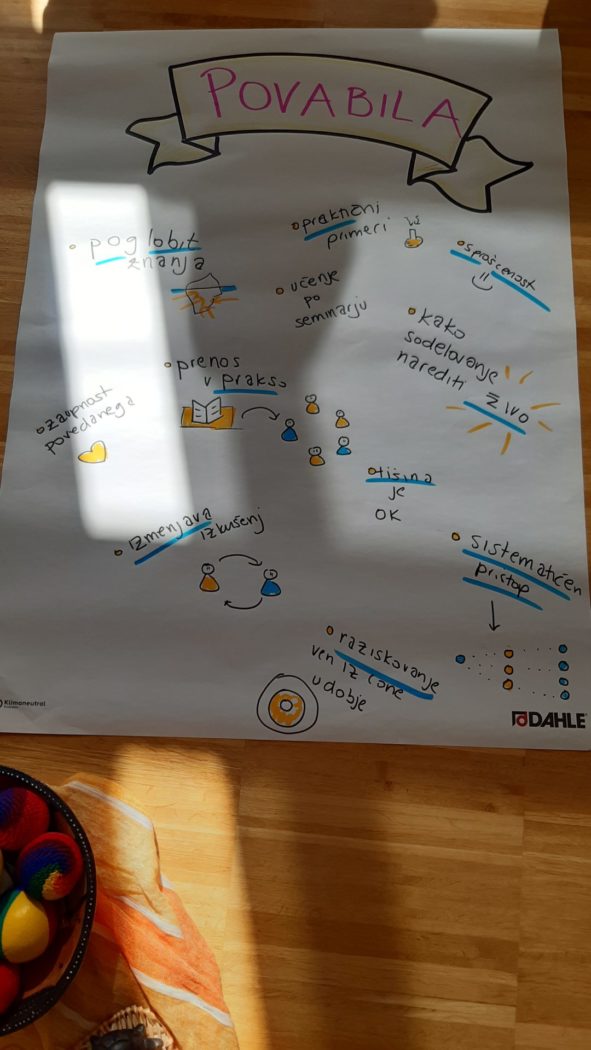 POVABILA
• poglobit
znanja
• praktični
primeri
• sproščenost
• učenje
po
seminarju
• kako
sodelovanje
narediti
živo
• prenos
v prakso
• zaupnost
povedanega
• tišina
je
OK
• izmenjava
izkušenj
• sistematičen
pristop
• raziskovanje
ven iz cone
udobje
Klimaneutral
DAHLE